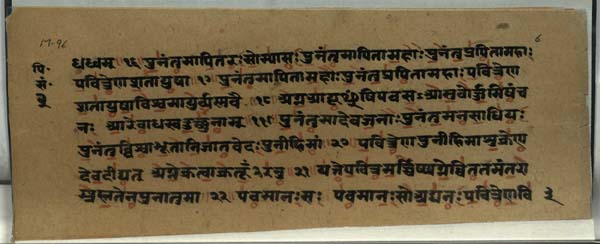 पि॰
सं॰
३
धध्वम् १६ पुनंतुमापितरःसोम्यासःपुनंतुमापितामहाःपुनंतुप्रपितामहाः
पवित्रेणशतायुषा १७ पुनंतुमापितामहाःपुनंतुप्रपितामहाःपवित्रेण
शतायुषाविश्वमायुर्व्यश्नवै १८ अग्नआयूंषिपवसःआसुवोर्ज्जमिषंच
नः आरेबाधस्वदुच्छुनाम् १९ पुनंतुमादेवजनाःपुनंतुमनसाधियः
पुनंतुविश्वाभूतानिजातवेदःपुनीहिमा २० पवित्रेणपुनीहिमाशुक्रेण
देवदीद्यत् अग्नेक्रत्वाक्रतूँ२रनु २१ यत्तेपवित्रमर्च्चिष्यग्नेविततमंतरा
ब्रह्मतेनपुनातुमा २२ पवमानःसः पवमानःसोअद्यनःपवित्रेणवि ३